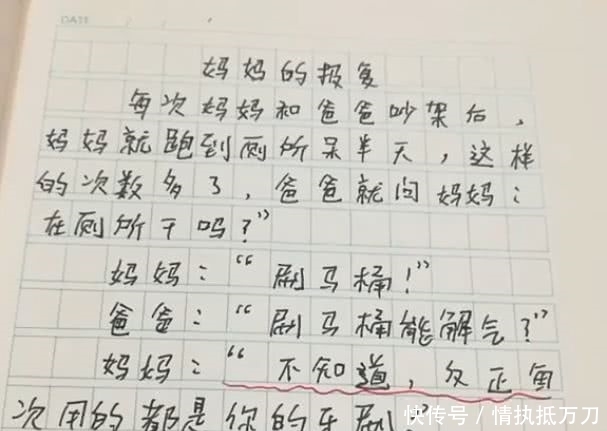 DATE
妈妈的报复
每次妈妈和爸爸吵架后，
妈妈就跑到厕所呆半天，这样
的次数多了，爸爸就问妈妈：
在厕所干吗？”
妈妈：“刷马桶！”
爸爸：“刷马桶能解气？”
妈妈：“不知道，反正每
次用的都是你的牙刷。”
快传号／情执抵万刀